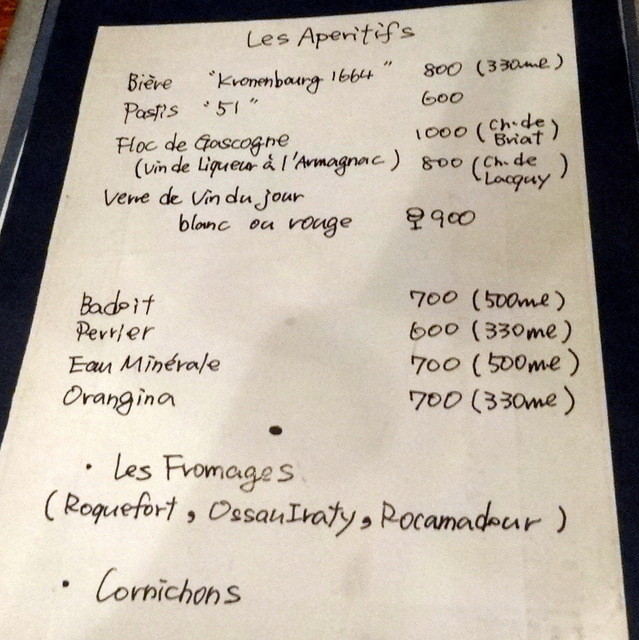 Les Aperitifs
Bière "Kronenbourg 1664" 800 (330mℓ)
Pastis "51" 600
Floc de Gascogne 1000 (Ch. de Briat)
(Vin de Liqueur à l'Armagnac) 800 (Ch. de Lacquy)
Verre de Vin du jour
blanc ou rouge 900
Badoit 700 (500mℓ)
Perrier 600 (330mℓ)
Eau Minérale 700 (500mℓ)
Orangina 700 (330mℓ)
• Les Fromages
(Roquefort, OssauIraty, Rocamadour)
• Cornichons